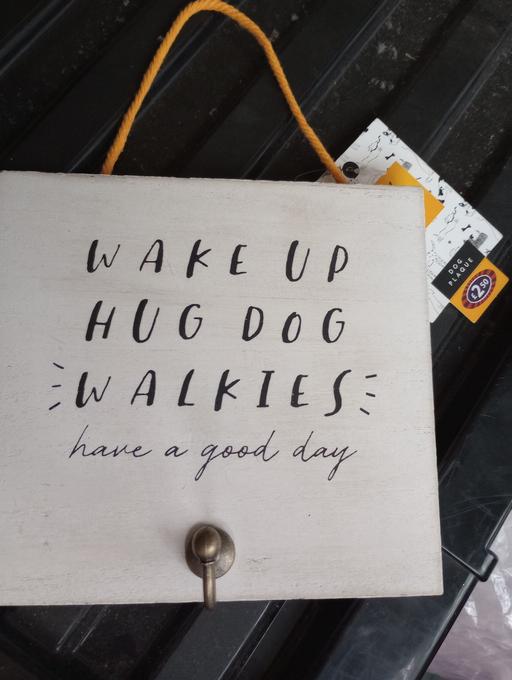 WAKE UP
HUG DOG
WALKIES
have a good day
DOG
PLAQUE
£2.50